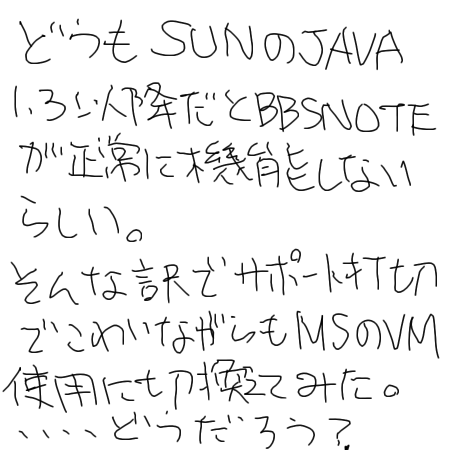 どうもSUNのJAVA
1.3以降だとBBSNOTE
が正常に機能しない
らしい。
そんな訳でサポート打切
でこわいながらもMSのVM
使用に切換えてみた。
、、、、どうだろう?